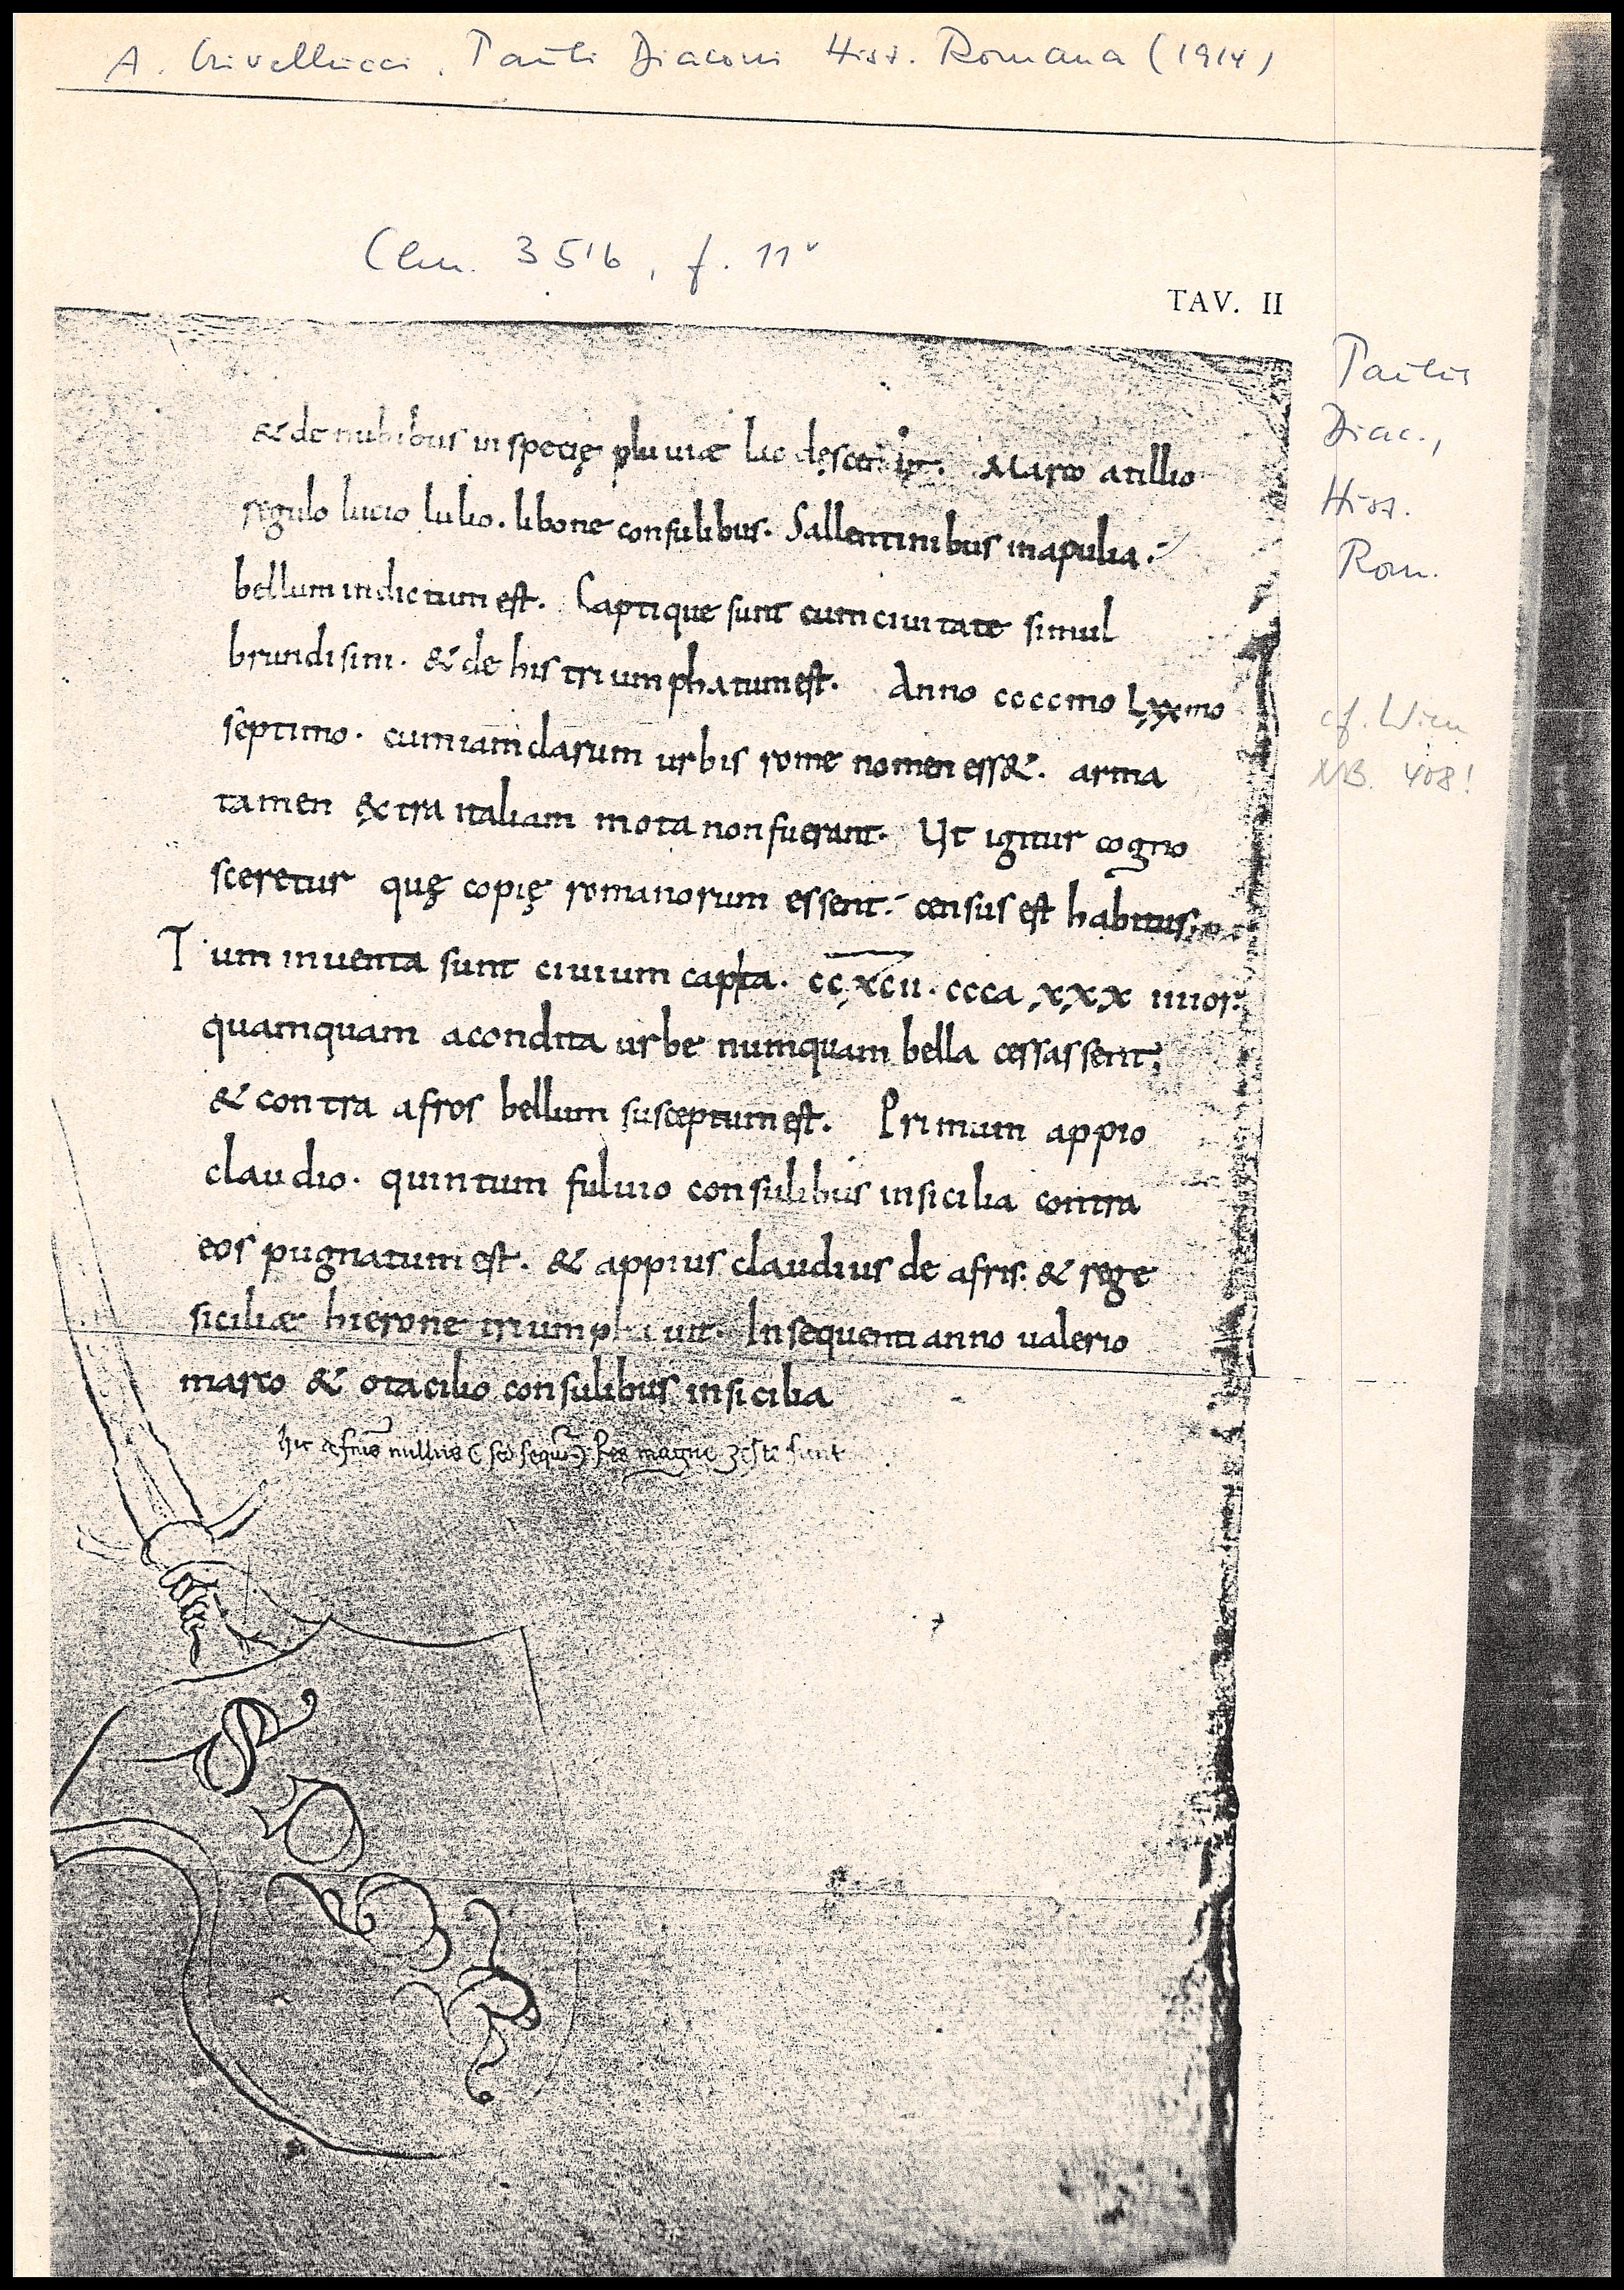 A. Crivellucci, Pauli Diaconi Hist. Romana (1914)
Clm. 3516, f. 11v
TAV. II
Paulus
Diac.,
Hist.
Rom.
cf. Wien
NB. 408!
& de nubibus in specię pluuiæ lac descendit. Marco atillio
regulo lucio lulio. libone consulibus. Sallentinibus inapulia.
bellum indictum est. Captique sunt cum ciuitate simul
brundisini. & de his triumphatum est. Anno ccccmo Lxxmo
septimo. cum iam clarum urbis rome nomen ess&. arma
tamen extra italiam mota non fuerant. Ut igitur cogno
sceretur quę copię romanorum essent. census est habitus;
Tum inuenta sunt ciuium capita. ccxcii. ccca xxx iiiior.
quamquam acondita urbe numquam bella cessassent;
& contra afros bellum susceptum est. Primum appio
claudio. quintum fuluio consulibus insicilia contra
eos pugnatum est. & appius claudius de afris. & rege
siciliæ hierone triumphauit. Insequenti anno ualerio
marco & otacilio consulibus insicilia
hic nullus sed Res magne